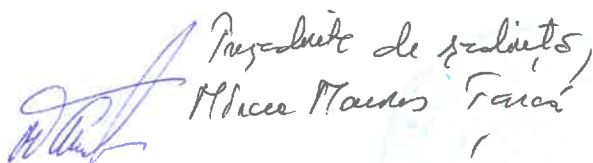 Președinte de ședință,
Mircea Marius Tarcă